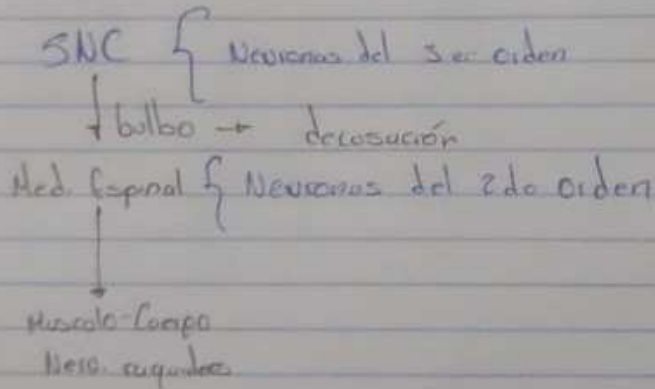 SNC { Neuronas del 3er orden
↓ bulbo → decusación
Med. Espinal { Neuronas del 2do orden
Musculo-Cuerpo